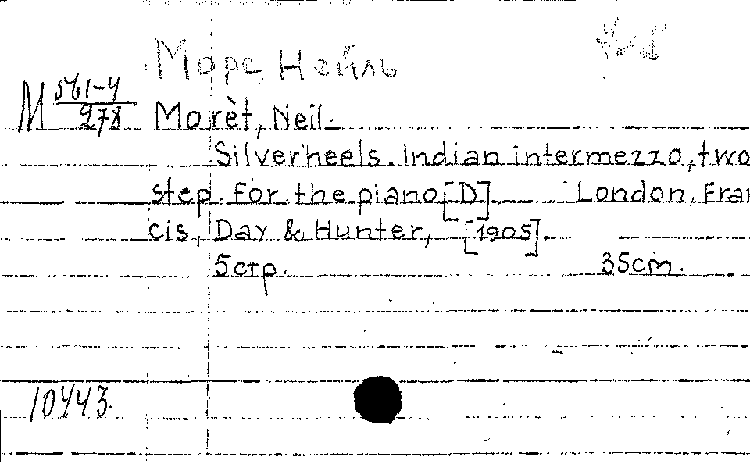 Море, Нейль
М 561-4/278
Morèt, Neil.
Silverheels. Indian intermezzo, two
step. For the piano [D]. London, Fran
cis, Day & Hunter, [1905].
5 стр. 35 cm.
10443.